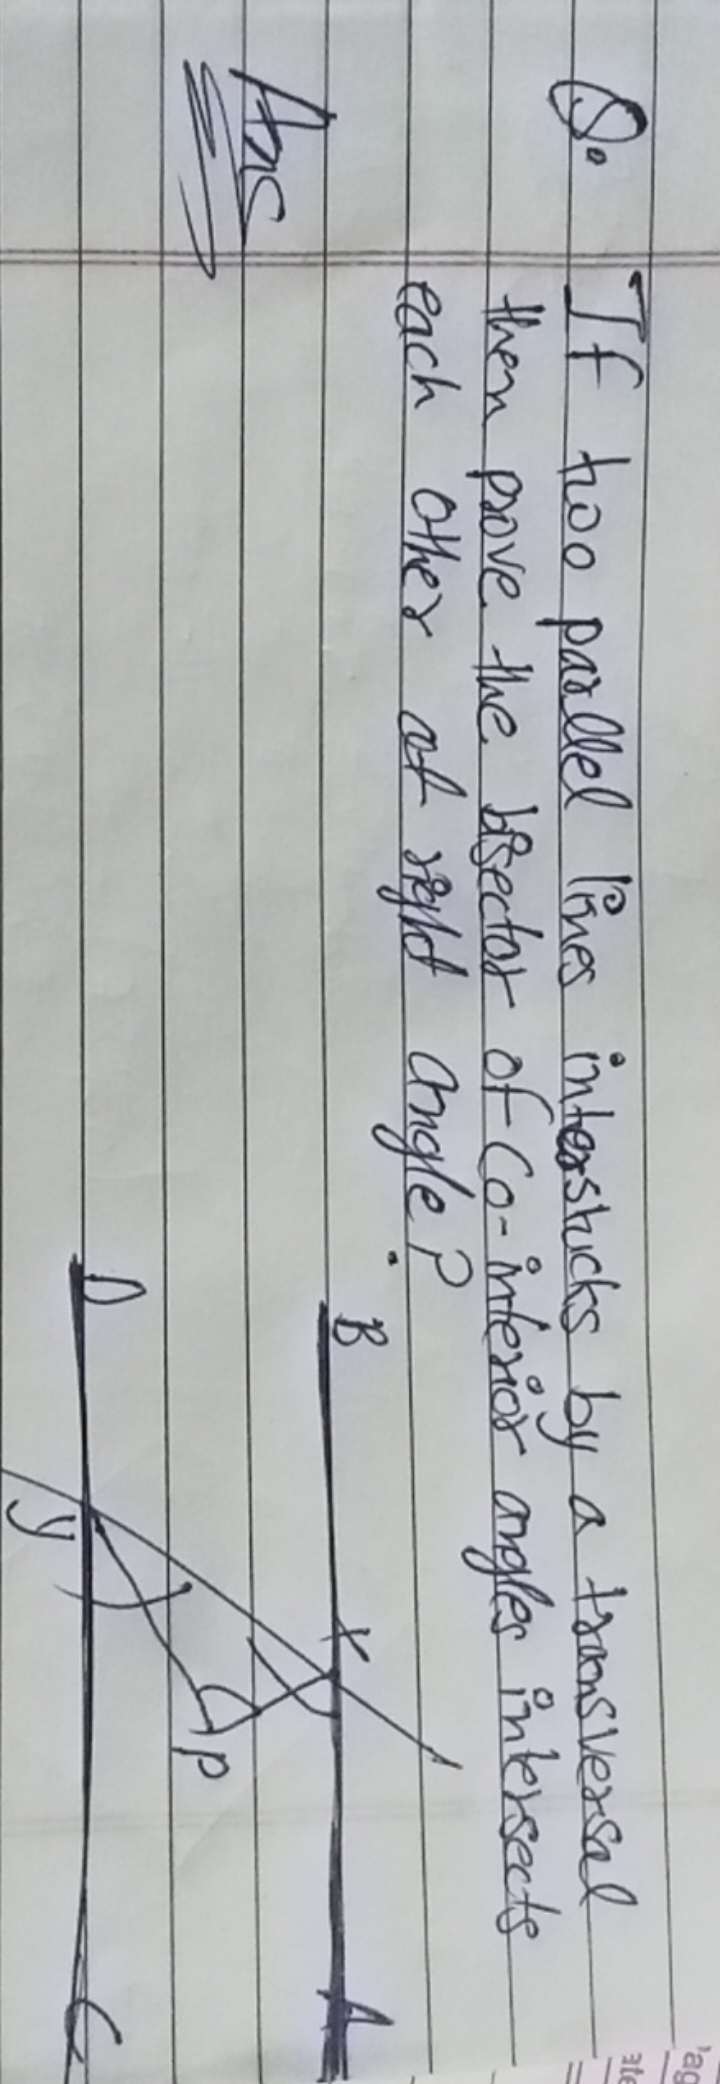 Q. If two parallel lines interstucks by a transversal
then prove the bisector of Co-interior angles intersects
each other at right angle?
Ans
B X A
P
D Y C